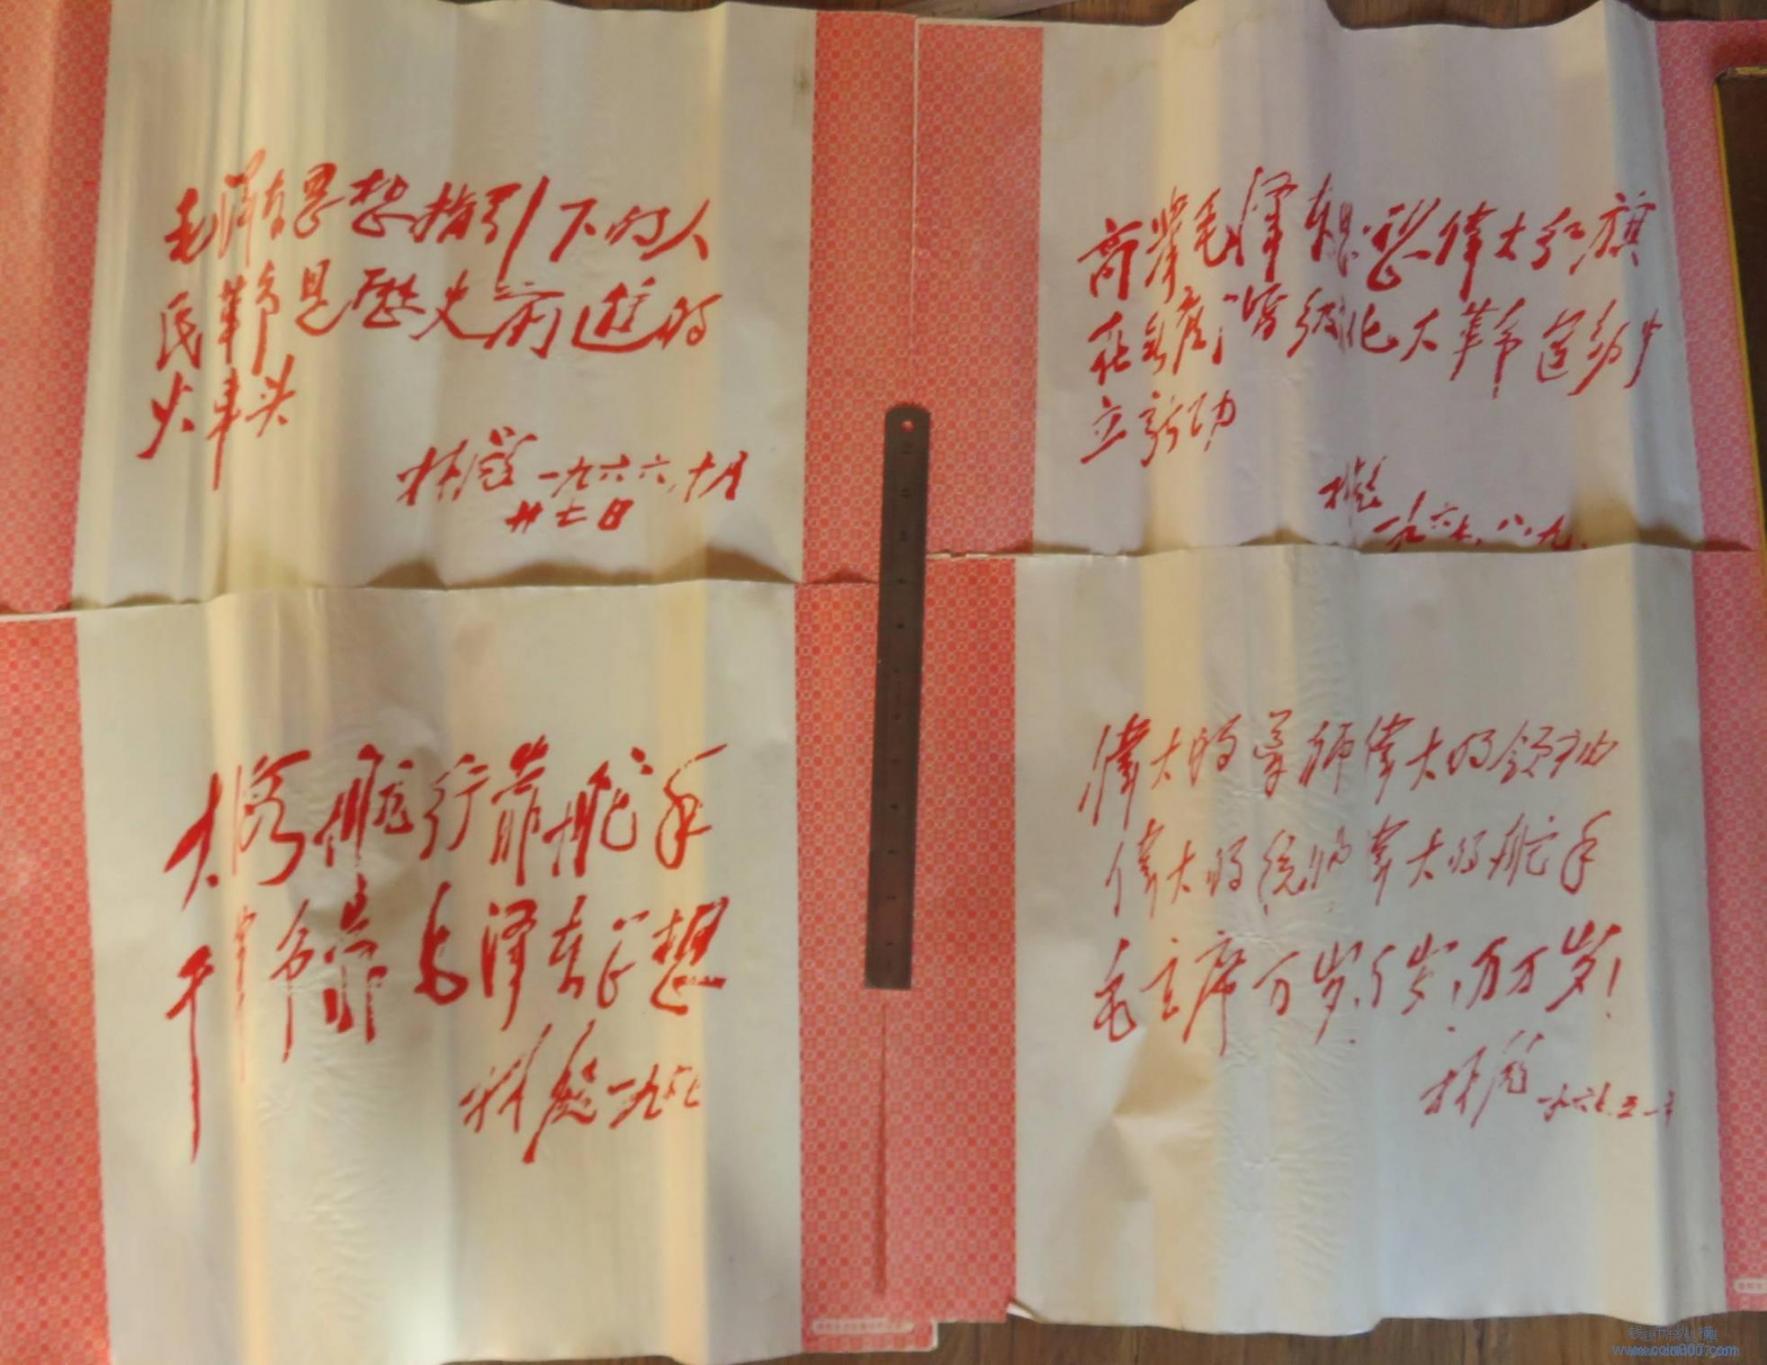 毛泽东思想指引下的人
民革命是歷史前進的
火車头
林彪 一九六六、十月
廿七日
高举毛泽东思想偉大红旗
在無产阶级文化大革命运动中
立新功
林彪
一九六七、八、九、
大海航行靠舵手
干革命靠毛泽东思想
林彪 一九六七
偉大的导师偉大的领袖
偉大的统帅偉大的舵手
毛主席万岁!万岁!万万岁!
林彪 一九六七、五一节
www.coin007.com